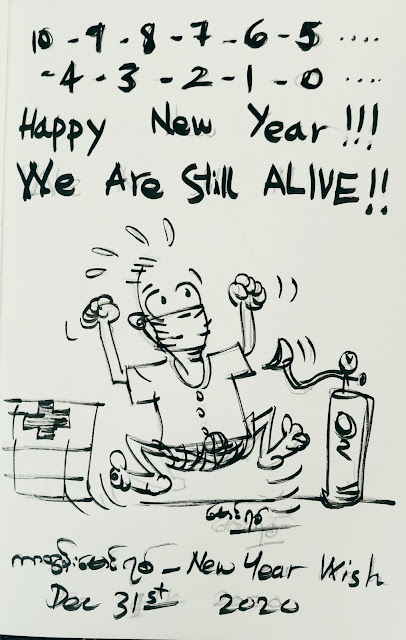 10 - 9 - 8 - 7 - 6 - 5 ....
- 4 - 3 - 2 - 1 - 0 ....
Happy New Year !!!
We Are Still ALIVE !!
O2
မောင်ရစ်
ကာတွန်းမောင်ရစ် - New Year Wish
Dec 31st 2020